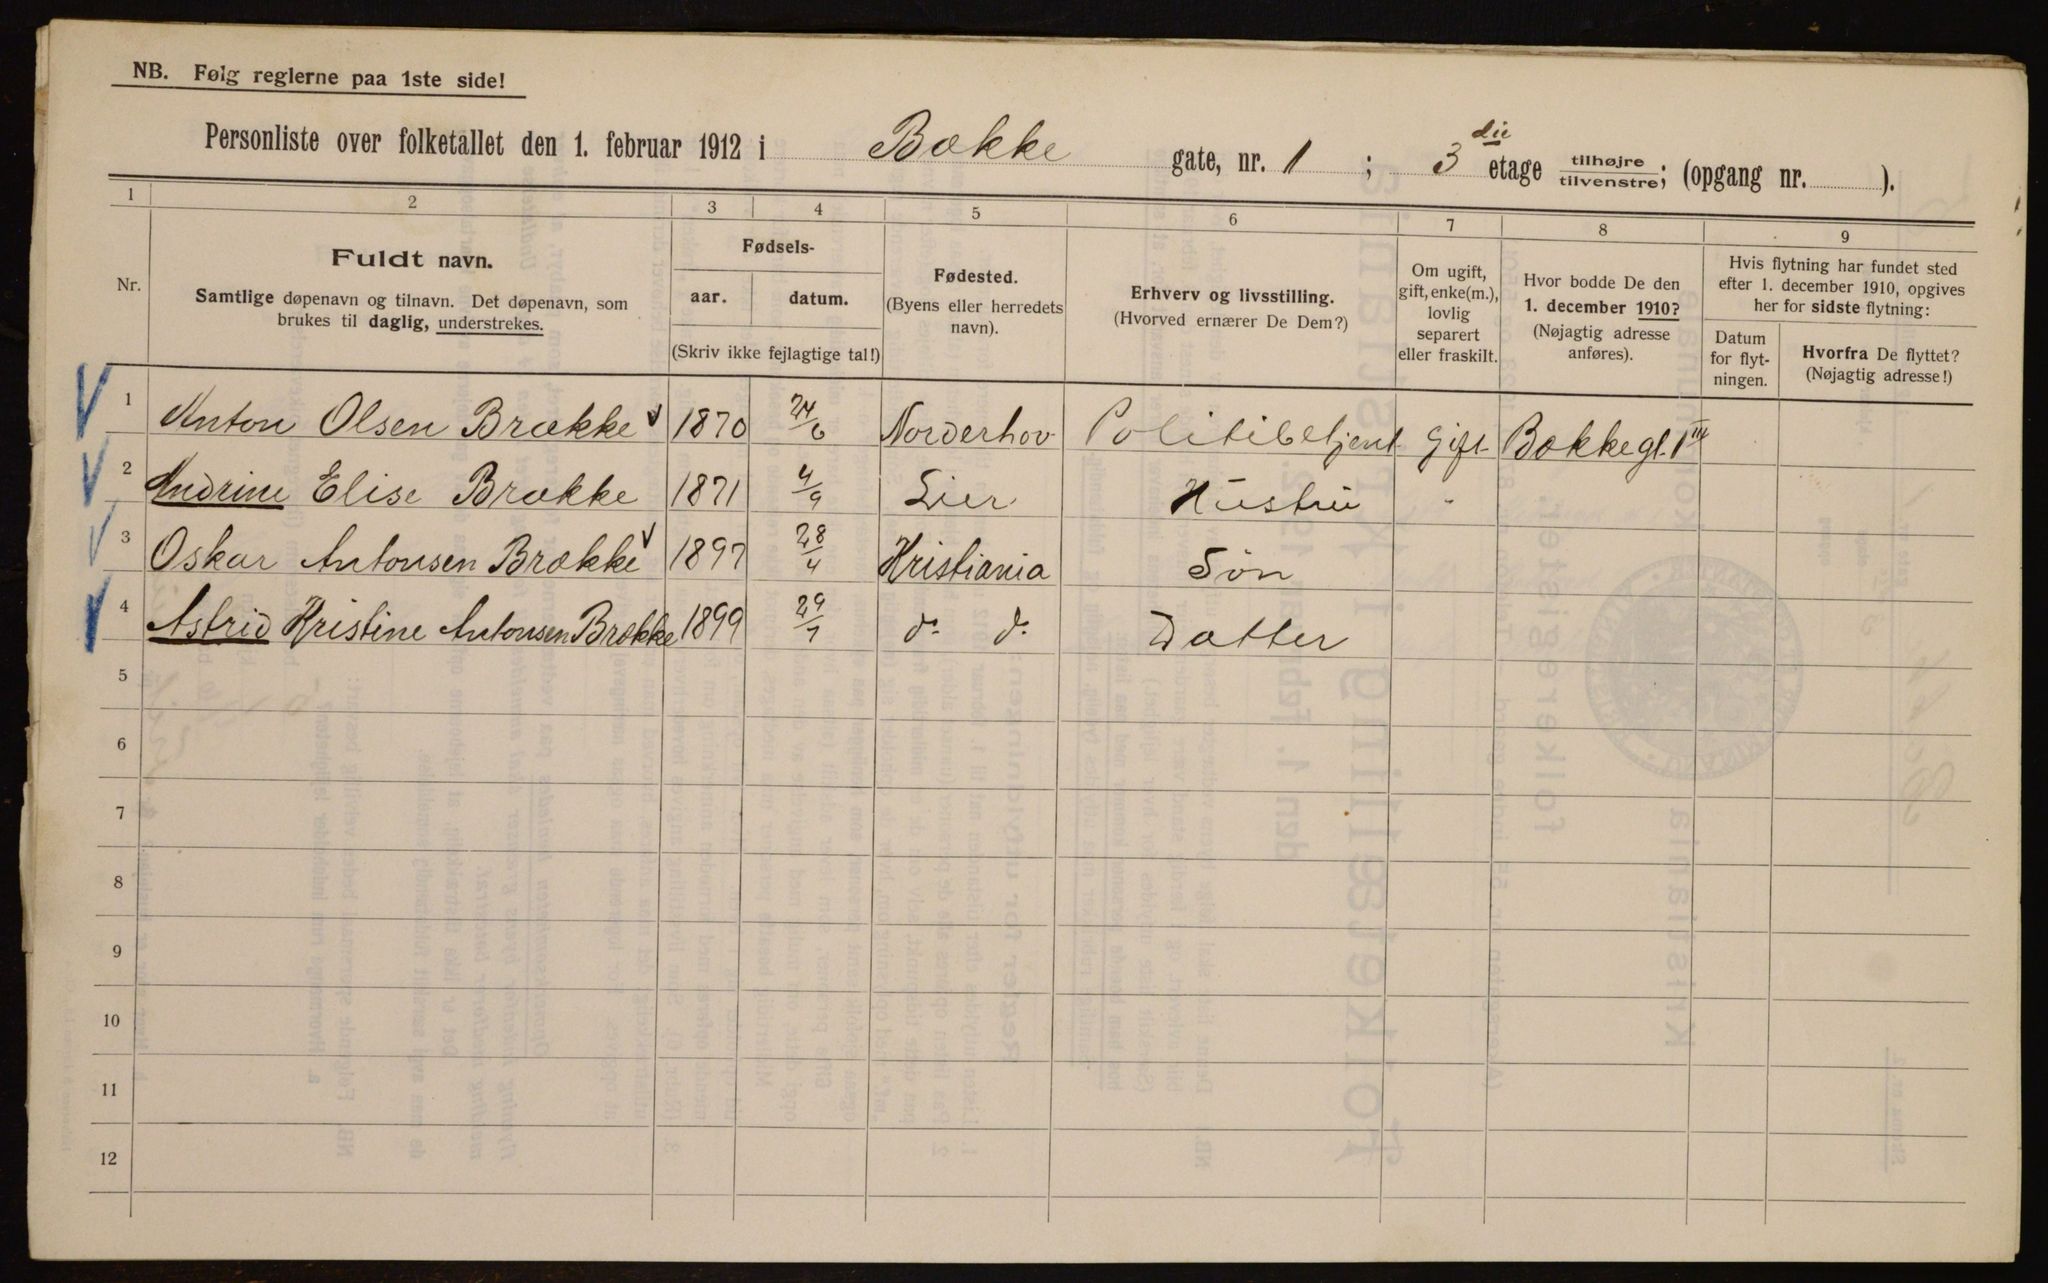 NB. Følg reglerne paa 1ste side!
Personliste over folketallet den 1. februar 1912 i Bække gate, nr. 1 ; 3 die etage tilhøjre/tilvenstre; (opgang nr. ).
1 2 3 4 5 6 7 8 9
Nr.
Fuldt navn.
Samtlige døpenavn og tilnavn. Det døpenavn, som
brukes til daglig, understrekes.
Fødsels-
aar. datum.
(Skriv ikke fejlagtige tal!)
Fødested.
(Byens eller herredets
navn).
Erhverv og livsstilling.
(Hvorved ernærer De Dem?)
Om ugift,
gift, enke(m.),
lovlig
separert
eller fraskilt.
Hvor bodde De den
1. december 1910?
(Nøjagtig adresse
anføres).
Hvis flytning har fundet sted
efter 1. december 1910, opgives
her for sidste flytning:
Datum
for flyt-
ningen.
Hvorfra De flyttet?
(Nøjagtig adresse!)
1 Anton Olsen Brække 1870 24/6 Norderhov Politibetjent Gift Bækkegt. 1 III
2 Andrine Elise Brække 1871 4/9 Lier Hustru "
3 Oskar Antonsen Brække 1897 28/4 Kristiania Søn
4 Astrid Kristine Antonsen Brække 1899 29/7 do. do. Datter
5
6
7
8
9
10
11
12